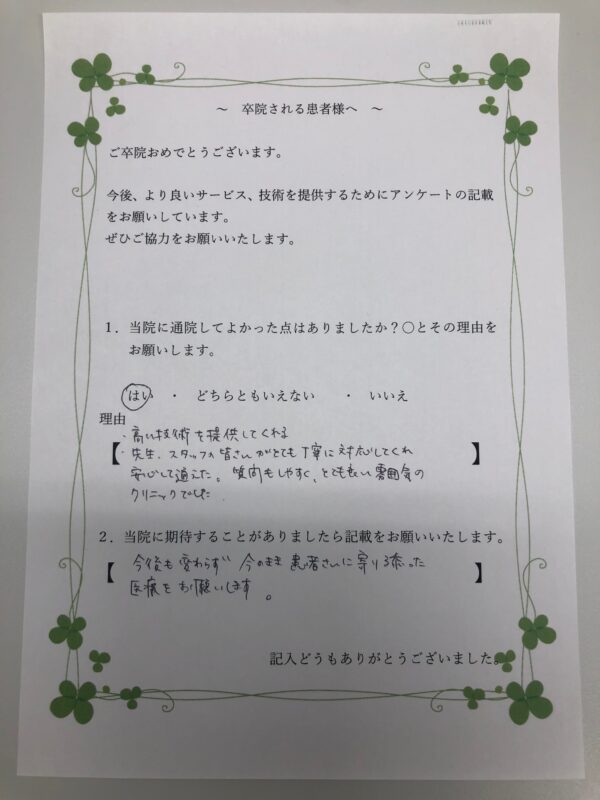 ～ 卒院される患者様へ ～
ご卒院おめでとうございます。
今後、より良いサービス、技術を提供するためにアンケートの記載
をお願いしています。
ぜひご協力をお願いいたします。
１．当院に通院してよかった点はありましたか？〇とその理由を
お願いします。
はい ・ どちらともいえない ・ いいえ
理由
・高い技術を提供してくれる
【・先生、スタッフの皆さんがとても丁寧に対応してくれ 】
安心して通えた。質問もしやすく、とても良い雰囲気の
クリニックでした
２．当院に期待することがありましたら記載をお願いいたします。
【 今後も変わらず 今のまま 患者さんに寄り添った 】
医療をお願いします。
記入どうもありがとうございました。